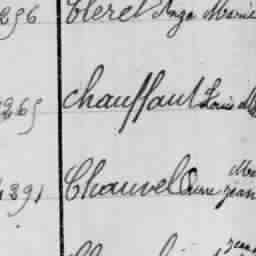 256 Cleret Ange Marie
265 Chauffaut Louis M
391 Chauvel Anne jean
jean